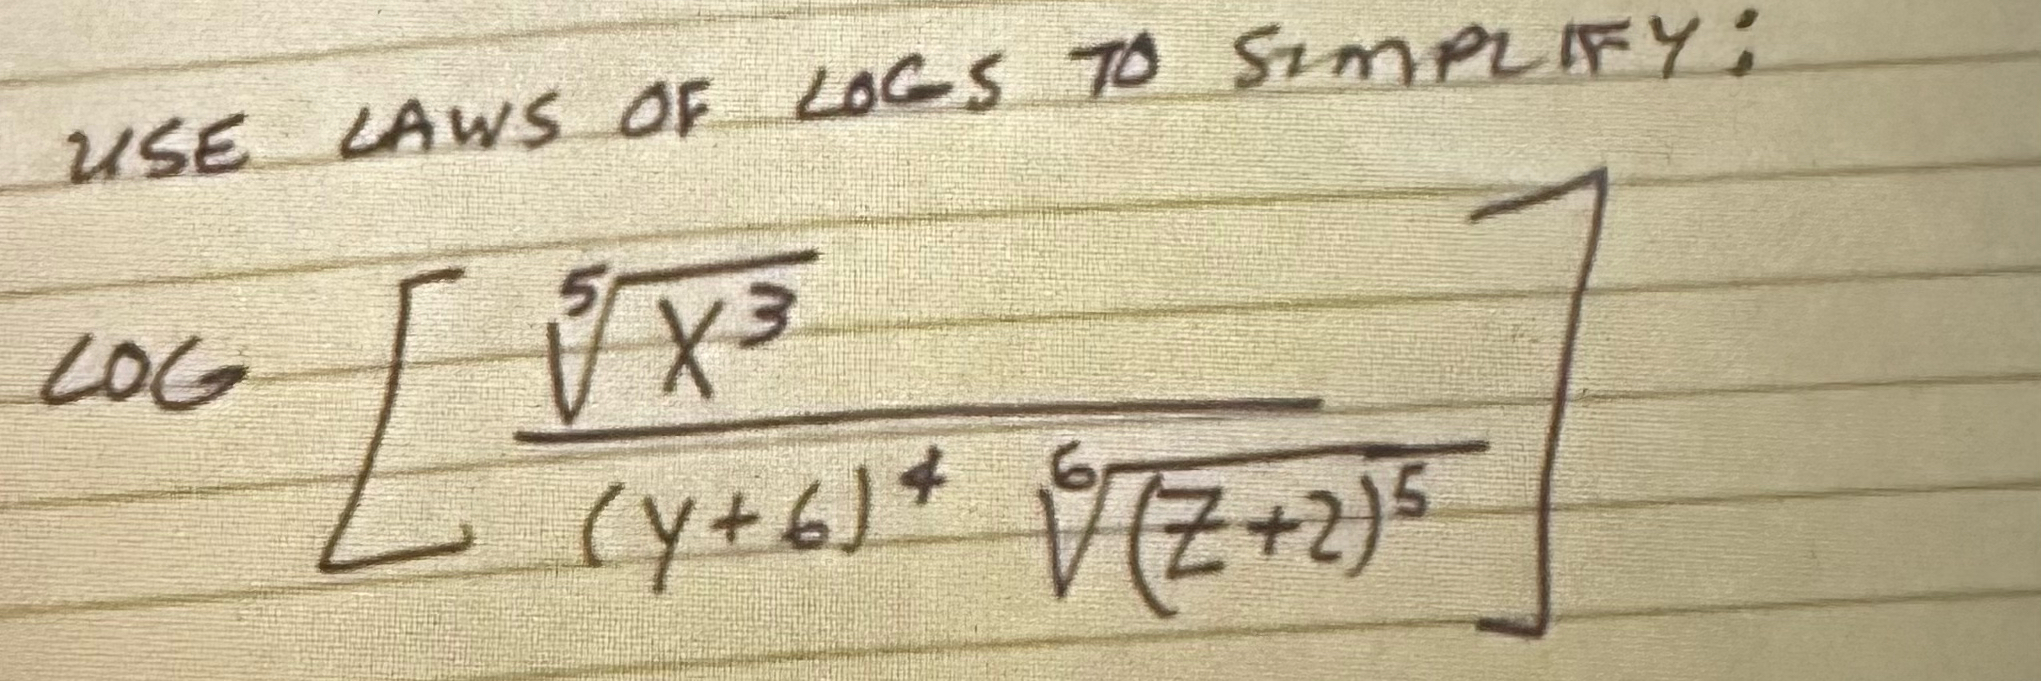 USE LAWS OF LOGS TO SIMPLIFY:
LOG [ ⁵√X³ / (Y+6)⁴ ⁶√(Z+2)⁵ ]